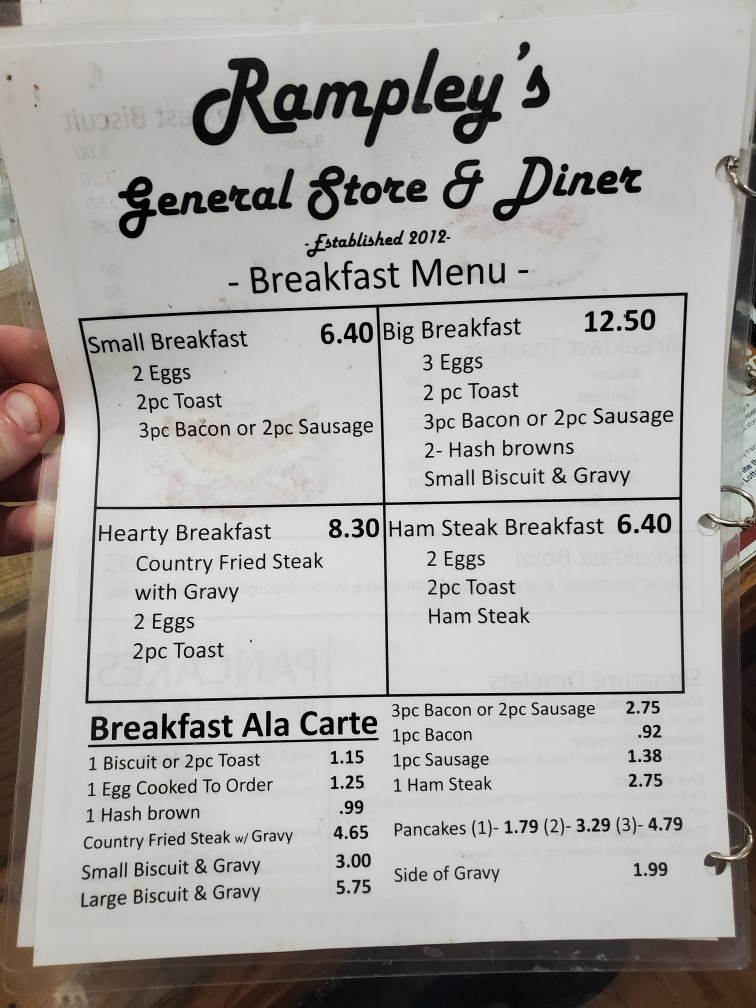 Rampley's
General Store & Diner
-Established 2012-
- Breakfast Menu -
Small Breakfast 6.40
2 Eggs
2pc Toast
3pc Bacon or 2pc Sausage
Big Breakfast 12.50
3 Eggs
2 pc Toast
3pc Bacon or 2pc Sausage
2- Hash browns
Small Biscuit & Gravy
Hearty Breakfast 8.30
Country Fried Steak
with Gravy
2 Eggs
2pc Toast
Ham Steak Breakfast 6.40
2 Eggs
2pc Toast
Ham Steak
Breakfast Ala Carte
1 Biscuit or 2pc Toast 1.15
1 Egg Cooked To Order 1.25
1 Hash brown .99
Country Fried Steak w/ Gravy 4.65
Small Biscuit & Gravy 3.00
Large Biscuit & Gravy 5.75
3pc Bacon or 2pc Sausage 2.75
1pc Bacon .92
1pc Sausage 1.38
1 Ham Steak 2.75
Pancakes (1)- 1.79 (2)- 3.29 (3)- 4.79
Side of Gravy 1.99